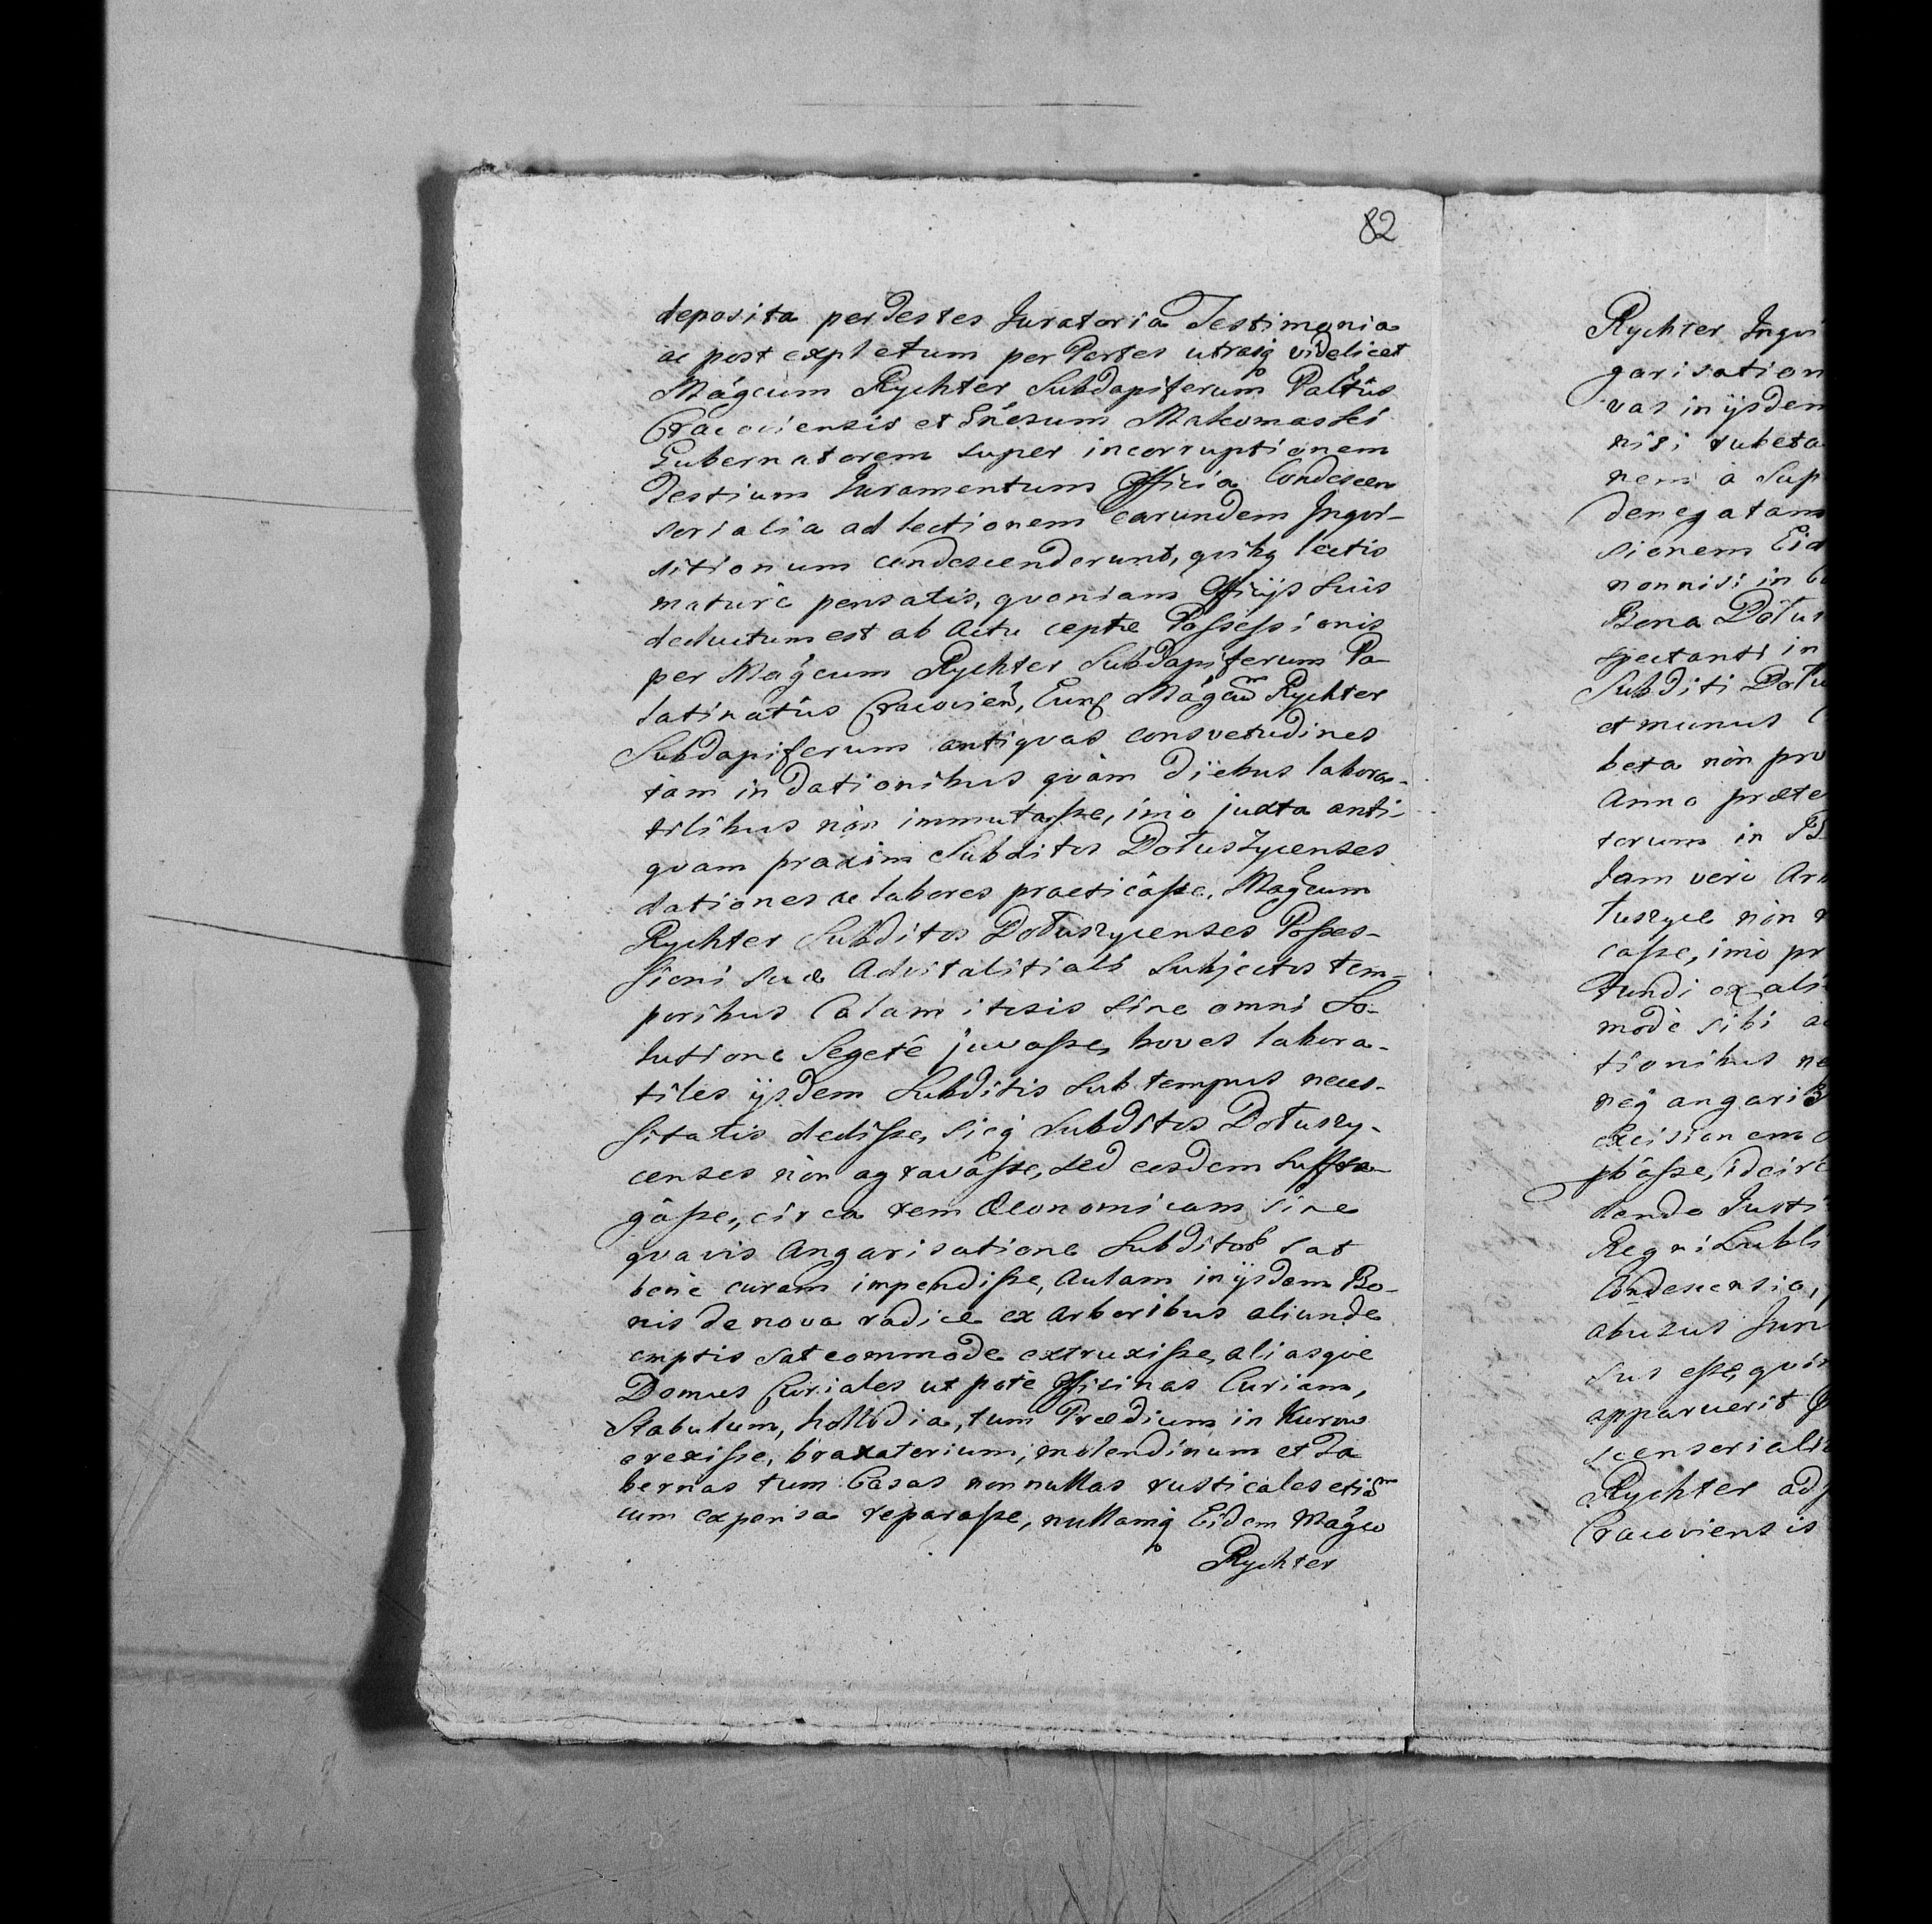 82
deposita per Testes Juratoria Testimonia
ac post expletum per Partes utrasq videlicet
Mágcum Rychter Subdapiferum Palt̃us
Cracoviensis et Gñesum Makomaski
Gubernatorem super incorruptionem
Testium Juramentum Officia Condescen
sorialia ad lectionem earundem Inqvi-
sitionum condescenderunt, qvibq lectis
maturè pensatis, qvoniam Officijs suis
deductum est ab Actu ceptæ Possessionis
per Mágcum Rychter Subdapiferum Pa-
latinatûs Cracovien, Eunq Mágcum Rychter
Subdapiferum antiqvas consvetudines
tàm in dationibus qvàm diebus labora-
tilibus nòn immutasse, imò juxta anti-
qvam praxim Subditos Dołuszycenses
dationes ac labores practicâsse, Mágcum
Rychter Subditos Dołuszycenses Posses-
sioni suæ Advitalitiali subjectos tem-
poribus Calamitosis sine omni So-
lutione Segetê juvasse, boves labora-
tiles ijsdem Subditis sub tempus neces-
sitatis dedisse, sicq subditos Dołuszy-
censes nòn agravâsse, sed eosdem suffra-
gâsse, circa rem Œconomicam sine
qvavis Angarisatione Subditor sat
benè curam impendisse, Aulam in ijsdem Bo-
nis de nova radice ex Arboribus aliunde
emptis sat commodè extruxisse, aliasqve
Domus Curiales ut potè Officinas Curiam,
Stabulum, hollodia, tum Prædium in Kurow
erexisse, braxatorium, molendinum et Ta
bernas tum Casas nonnullas rusticales etiãm
cum expensa reparasse, nullamq Eidem Mágco
Rychter
Rychter Inqvi
garisation
vas in ijsdem
nisi rubeta
nem à Sup
denegatam
sionem Eid
nonnisi in
Bona Dołus
spectanti in
Subditi Dołu
et munus
beta nòn pro
Anno præte
torum in
Jam verò An
łuszyce nòn
casse, imò pr
tundi ex ali
modè sibi a
tionibus ne
neq angari
excisionem
pbâsse, idcirc
dendo Justi
Regni Lubli
Condescensio,
abusus Jur
sus esse, qvò
apparuerit
scensoriali
Rychter ad
Cracoviensis